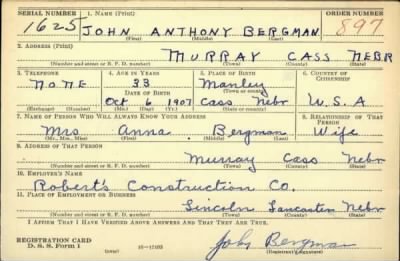 SERIAL NUMBER 1. NAME (Print) ORDER NUMBER
1625 JOHN ANTHONY BERGMAN 897
(First) (Middle) (Last)
2. ADDRESS (Print)
MURRAY CASS NEBR
(Number and street or R. F. D. number) (Town) (County) (State)
3. TELEPHONE 4. AGE IN YEARS 5. PLACE OF BIRTH 6. COUNTRY OF CITIZENSHIP
NONE 33 Manley
DATE OF BIRTH (Town or county)
Oct 6 1907 Cass Nebr U.S.A
(Exchange) (Number) (Mo.) (Day) (Yr.) (State or country)
7. NAME OF PERSON WHO WILL ALWAYS KNOW YOUR ADDRESS 8. RELATIONSHIP OF THAT PERSON
Mrs Anna Bergman Wife
(Mr., Mrs., Miss) (First) (Middle) (Last)
9. ADDRESS OF THAT PERSON
Murray Cass Nebr
(Number and street or R. F. D. number) (Town) (County) (State)
10. EMPLOYER'S NAME
Robert's Construction Co.
11. PLACE OF EMPLOYMENT OR BUSINESS
Lincoln Lancaster Nebr
(Number and street or R. F. D. number) (Town) (County) (State)
I AFFIRM THAT I HAVE VERIFIED ABOVE ANSWERS AND THAT THEY ARE TRUE.
REGISTRATION CARD
D. S. S. Form 1 16-17105 John Bergman
(Registrant's signature)